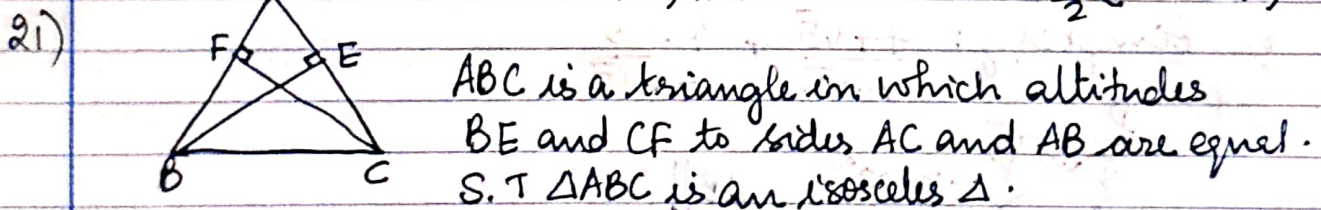 2
21)
F E
ABC is a triangle in which altitudes
BE and CF to sides AC and AB are equal.
B C
S.T ΔABC is an isosceles Δ.